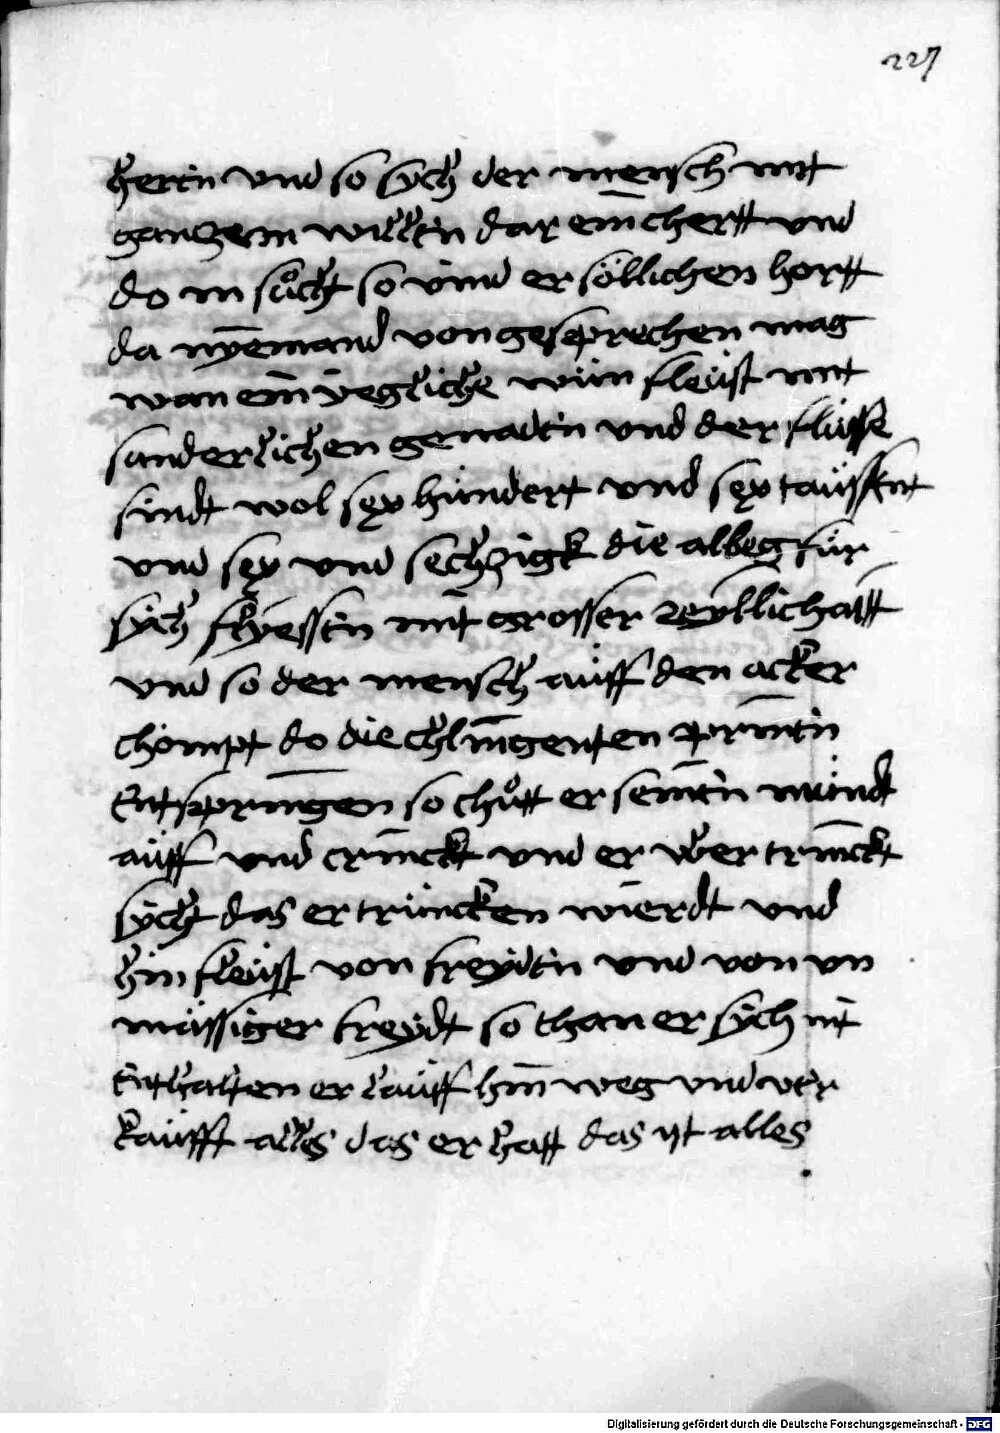 227
herrn vnd so sych der mensch mit
ganczem willen dar ein chertt vnd
do in sůcht so vind er söllichen hortt
da nyemand von gesprechen mag
wan ein yegliche wun fleüst mit
sanderlichen genaden vnd der flüsse
sindt wol sex hundert vnd sex taüssent
vnd sex vnd sechzigk die albeg für
sych flyessen mit grosser reyllichaitt
vnd so der mensch aüff den acker
chömpt do die chlingenten prinen
Entspringen so chůtt er seinen mündt
aüff vnd trinckt vnd er vber trinckt
sycht das er trüncken wierdt vnd
hin fleüst von freyden vnd von vn
mässiger freydt so than er sych nit
Enthalten er laüff hin weg vnd ver
kaüfft alls das er hatt das yst alles
Digitalisierung gefördert durch die Deutsche Forschungsgemeinschaft - DFG